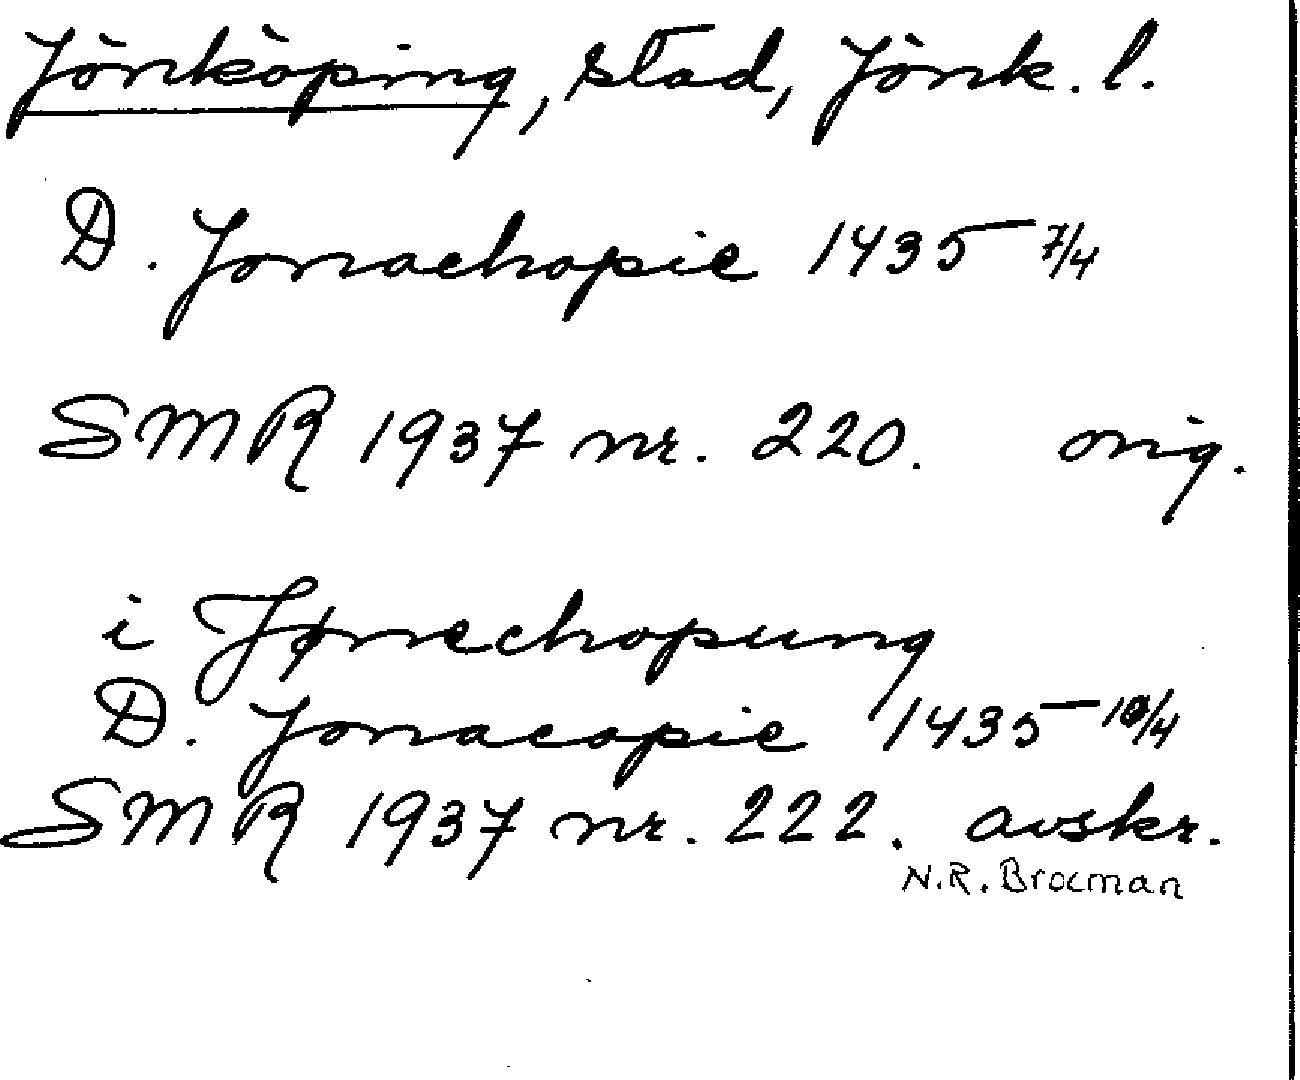 Jönköping, stad, Jönk. l.
D. Jonachopie 1435 7/4
SMR 1937 nr. 220. orig.
i Jønechopung
D. Jonacopie 1435 10/4
SMR 1937 nr. 222. avskr.
N.R. Brocman